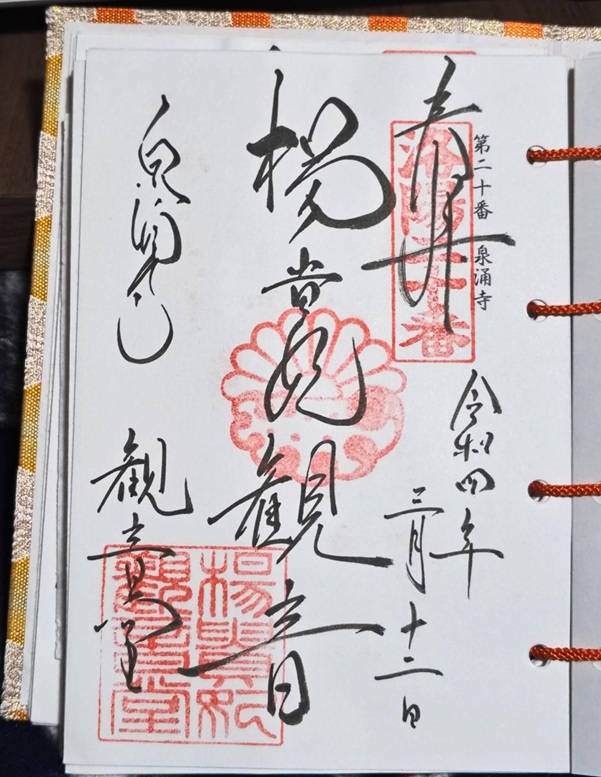 第二十番 泉涌寺
奉拝
洛陽二十番
令和四年
三月十二日
楊貴妃観音
泉涌寺
観音堂
楊貴妃
観音堂